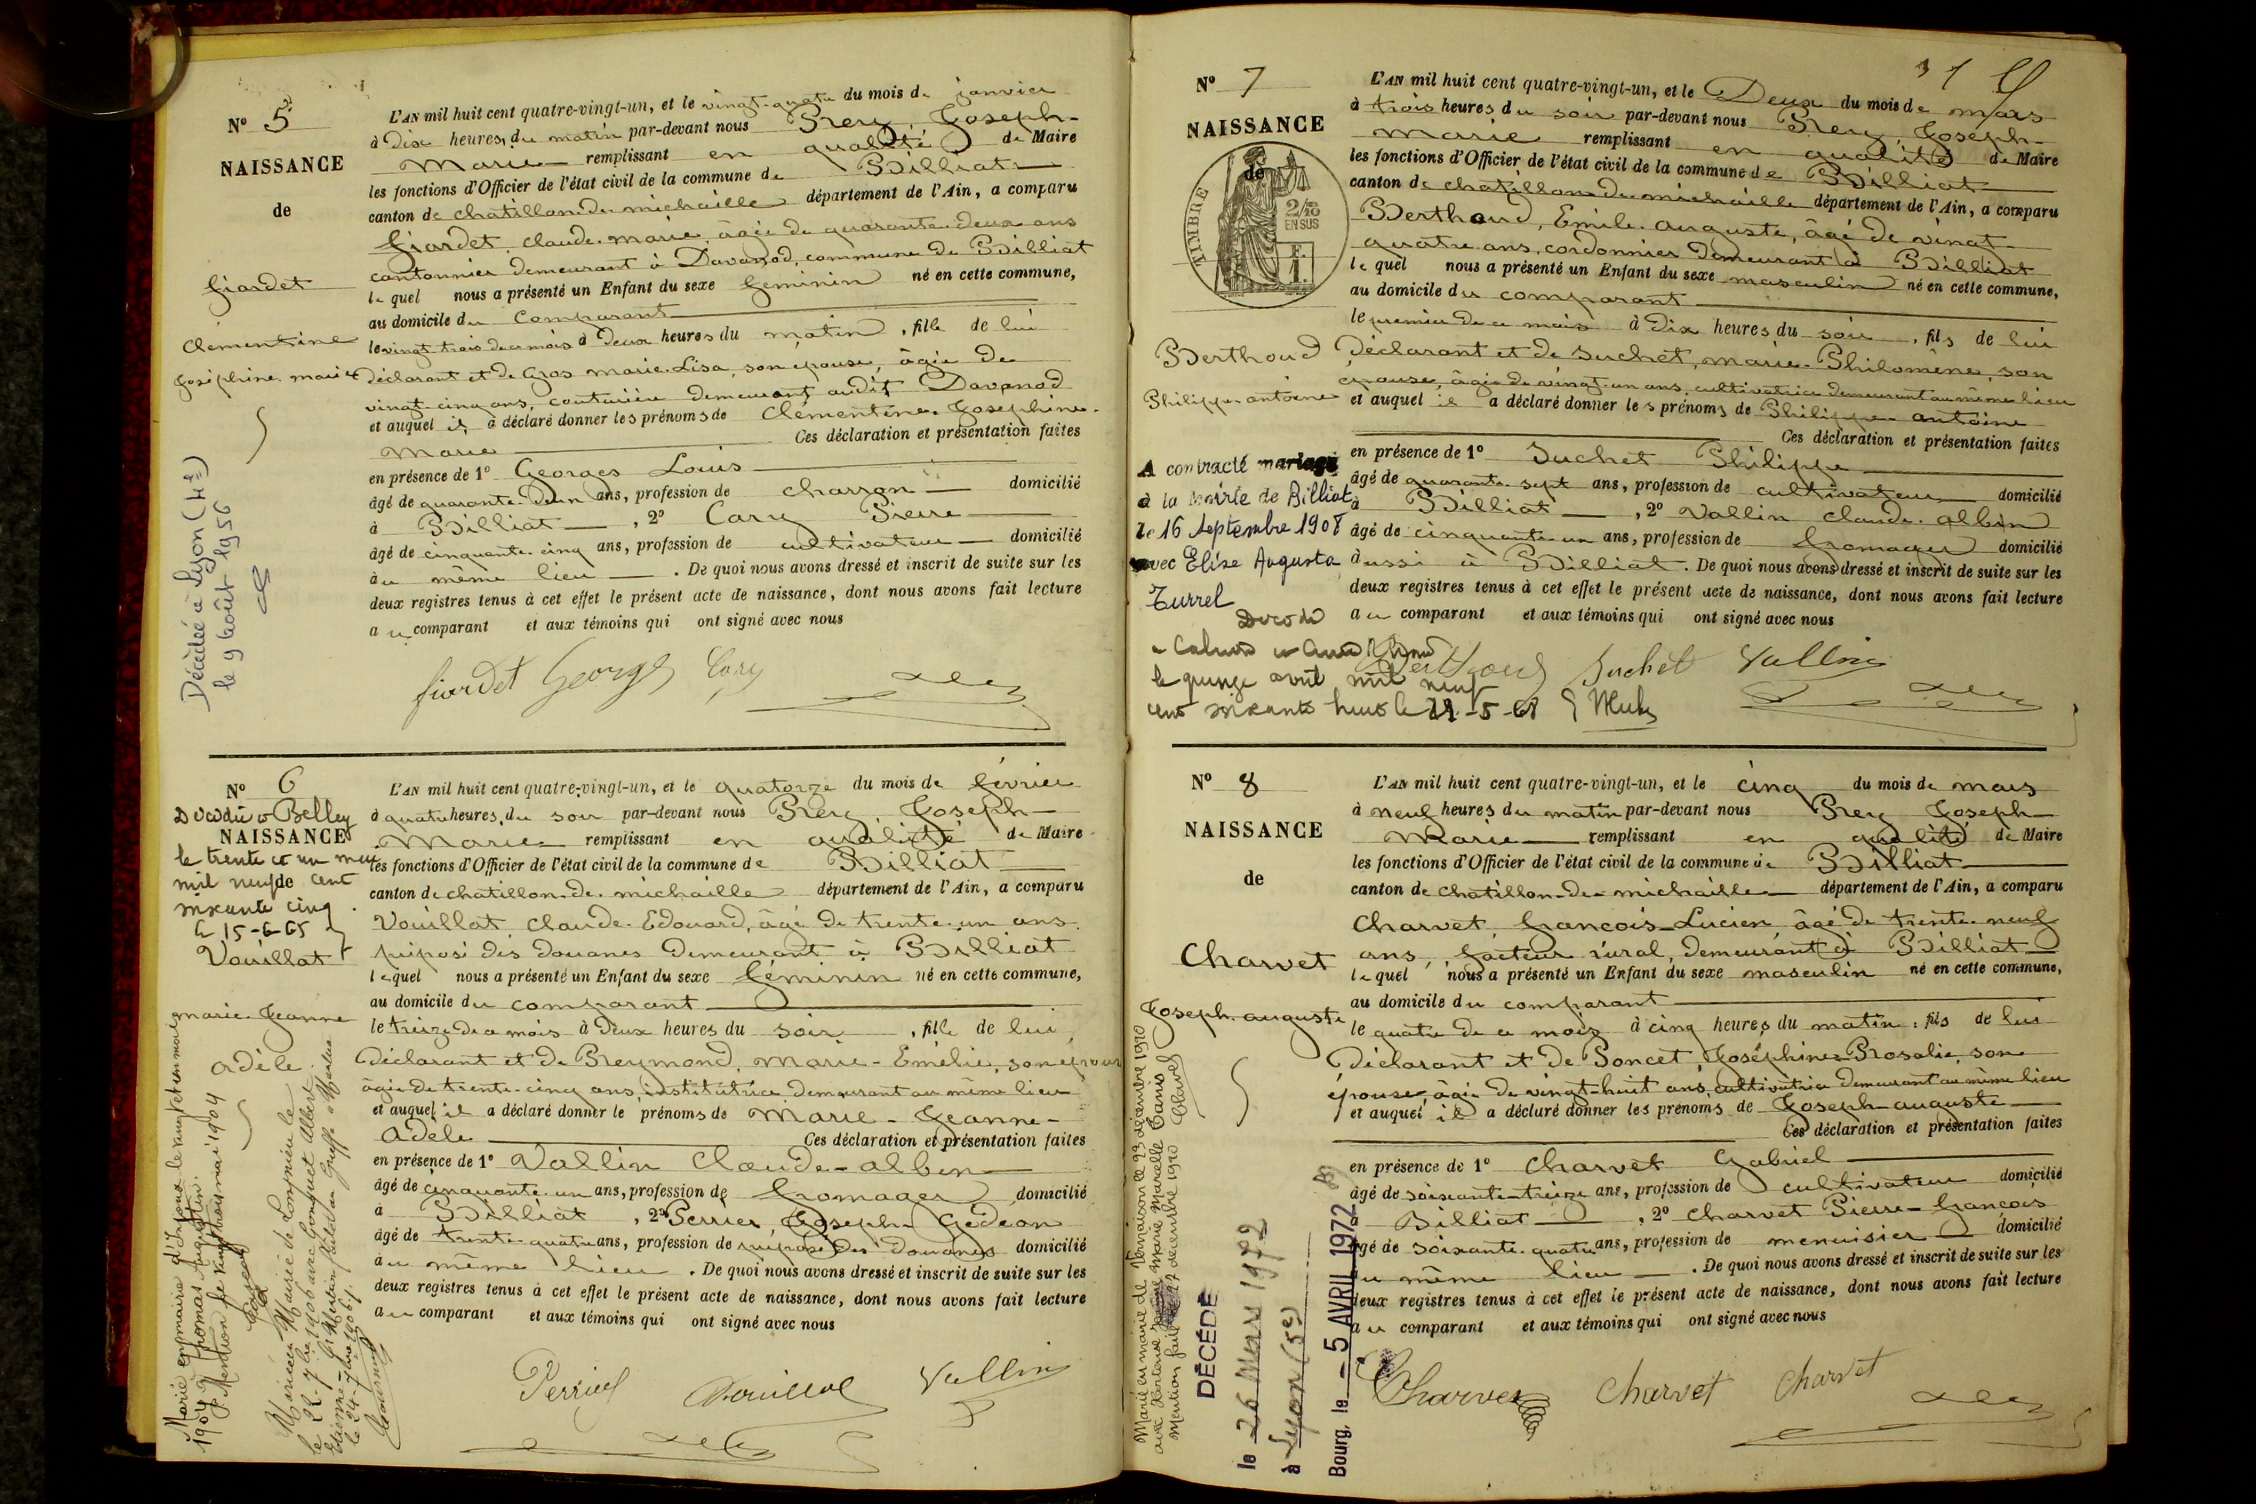 Nº 5
NAISSANCE
de
Giardet
Clémentine
Joséphine marie
Décédée à Lyon
le 9 Août 1956
L'AN mil huit cent quatre-vingt-un, et le vingt-quatre du mois de janvier
à Dix heures, du matin par-devant nous Prery, Joseph-
Marie remplissant en qualité de Maire
les fonctions d'Officier de l'état civil de la commune de Billiat
canton de chatillon-de-michaille département de l'Ain, a comparu
Giardet claude-marie, âgé de quarante-deux ans
cantonnier demeurant à Davanod, commune de Billiat
lequel nous a présenté un Enfant du sexe féminin né en cette commune,
au domicile du comparant
le vingt-trois de ce mois à Deux heures du matin, fille de lui
déclarant et de Gros marie-Lisa, son épouse, âgée de
vingt-cinq ans, couturière demeurant audit Davanod
et auquel il a déclaré donner les prénoms de Clémentine-Joséphine-
Marie Ces déclaration et présentation faites
en présence de 1º Georges Louis
âgé de quarante-deux ans, profession de charron domicilié
à Billiat, 2º Cary Pierre
âgé de cinquante-cinq ans, profession de cultivateur domicilié
au même lieu. De quoi nous avons dressé et inscrit de suite sur les
deux registres tenus à cet effet le présent acte de naissance, dont nous avons fait lecture
au comparant et aux témoins qui ont signé avec nous
Giardet George Cary
Nº 6
Décédée à Belley
NAISSANCE
le trente et un mai
mil neuf de cent
soixante cinq
le 15-6-65
Vouillat
marie-Jeanne
adèle
Marié en mairie d'Oyonnax le vingt et un mai
1904 Thomas Augustin
Mention le vingt trois mai 1904
L'AN mil huit cent quatre-vingt-un, et le quatorze du mois de février
à quatre heures, du soir par-devant nous Prery, Joseph-
Marie remplissant en qualité de Maire
les fonctions d'Officier de l'état civil de la commune de Billiat
canton de chatillon-de-michaille département de l'Ain, a comparu
Vouillat, claude-Edouard, âgé de trente-un ans
préposé des douanes demeurant à Billiat
lequel nous a présenté un Enfant du sexe féminin né en cette commune,
au domicile du comparant
le treize de ce mois à deux heures du soir, fille de lui
déclarant et de Breymond, Marie-Emélie, son épouse
âgée de trente-cinq ans, institutrice demeurant au même lieu
et auquel il a déclaré donner le prénoms de Marie-Jeanne-
adèle Ces déclaration et présentation faites
en présence de 1º Vallin Claude-albin
âgé de cinquante-un ans, profession de fromager domicilié
à Billiat, 2º Perrier, Joseph Gédéon
âgé de trente-quatre ans, profession de préposé des douanes domicilié
au même lieu. De quoi nous avons dressé et inscrit de suite sur les
deux registres tenus à cet effet le présent acte de naissance, dont nous avons fait lecture
au comparant et aux témoins qui ont signé avec nous
Perrier Vouillat Vallin
37
Nº 7
NAISSANCE
de
TIMBRE
2/10
EN SUS
Berthoud
Philippe-antoine
A contracté mariage
à la Mairie de Billiat
le 16 Septembre 1908
avec Elise Augusta
Turrel
Décédé
le quinze avril mil neuf
cent soixante huit le 29-5-68
L'AN mil huit cent quatre-vingt-un, et le Deux du mois de mars
à trois heures du soir par-devant nous Prery Joseph-
Marie remplissant en qualité de Maire
les fonctions d'Officier de l'état civil de la commune de Billiat
canton de chatillon-de-michaille département de l'Ain, a comparu
Berthoud, Emile-auguste, âgé de vingt-
quatre ans, cordonnier demeurant à Billiat
lequel nous a présenté un Enfant du sexe masculin né en cette commune,
au domicile du comparant
le premier de ce mois à dix heures du soir, fils de lui
déclarant et de Suchet, marie-Philomène, son
épouse, âgée de vingt-un ans, cultivatrice demeurant au même lieu
et auquel il a déclaré donner les prénoms de Philippe-antoine
Ces déclaration et présentation faites
en présence de 1º Suchet Philippe
âgé de quarante-sept ans, profession de cultivateur domicilié
à Billiat, 2º Vallin claude-albin
âgé de cinquante-un ans, profession de fromager domicilié
aussi à Billiat. De quoi nous avons dressé et inscrit de suite sur les
deux registres tenus à cet effet le présent acte de naissance, dont nous avons fait lecture
au comparant et aux témoins qui ont signé avec nous
Berthoud Suchet Vallin
Nº 8
NAISSANCE
de
Charvet
Joseph-auguste
Marié en mairie de Vernaison le 23 décembre 1920
DÉCÉDÉ
le 26 Mars 1972
à Lyon (5e)
Bourg, le - 5 AVRIL 1972
L'AN mil huit cent quatre-vingt-un, et le cinq du mois de mars
à neuf heures du matin par-devant nous Prery Joseph-
Marie remplissant en qualité de Maire
les fonctions d'Officier de l'état civil de la commune de Billiat
canton de chatillon-de-michaille département de l'Ain, a comparu
Charvet, françois-Lucien âgé de trente-neuf
ans, facteur rural, demeurant à Billiat
lequel nous a présenté un Enfant du sexe masculin né en cette commune,
au domicile du comparant
le quatre de ce mois à cinq heures du matin, fils de lui
déclarant et de Poncet, Joséphine-Rosalie, son
épouse, âgée de vingt-huit ans, cultivatrice demeurant au même lieu
et auquel il a déclaré donner les prénoms de Joseph-auguste
Ces déclaration et présentation faites
en présence de 1º Charvet Gabriel
âgé de soixante-treize ans, profession de cultivateur domicilié
Billiat, 2º charvet Pierre-françois
âgé de soixante-quatre ans, profession de menuisier domicilié
au même lieu. De quoi nous avons dressé et inscrit de suite sur les
deux registres tenus à cet effet le présent acte de naissance, dont nous avons fait lecture
au comparant et aux témoins qui ont signé avec nous
Charvet Charvet Charvet